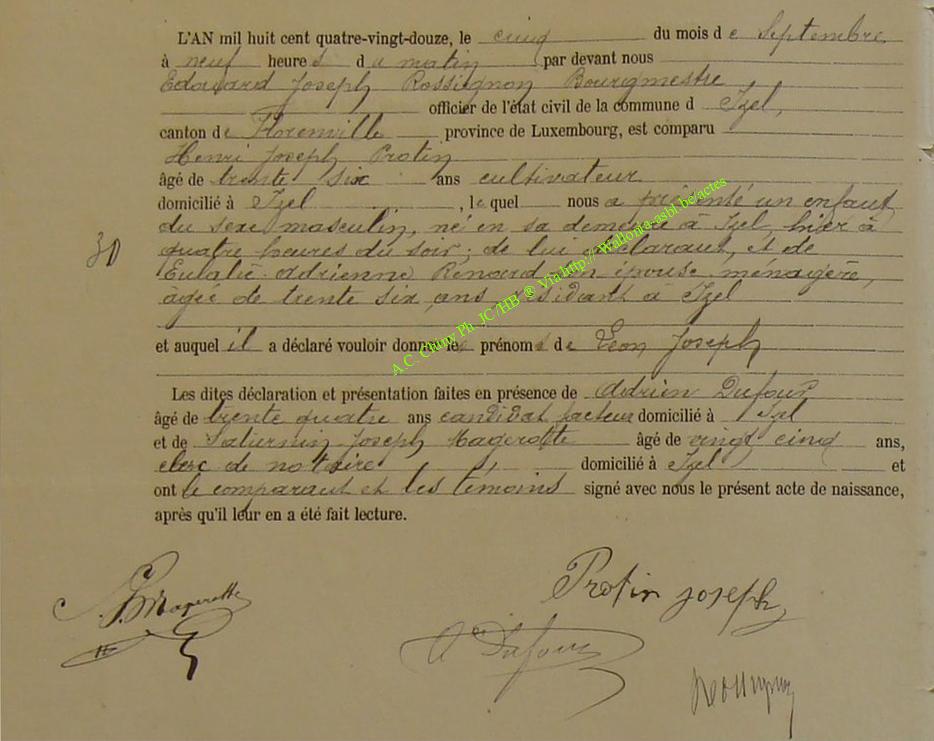 L'AN mil huit cent quatre-vingt-douze, le cinq du mois de Septembre
à neuf heures du matin par devant nous
Edouard Joseph Rossignon Bourgmestre
officier de l'état civil de la commune d Izel,
canton de Florenville province de Luxembourg, est comparu
Henri Joseph Protin
âgé de trente six ans cultivateur
domicilié à Izel, lequel nous a présenté un enfant
du sexe masculin, né en sa demeure à Izel, hier à
30
quatre heures du soir; de lui déclarant, et de
Eulalie Adrienne Renard son épouse ménagère,
âgée de trente six ans, résidant à Izel
et auquel il a déclaré vouloir donner les prénoms de Léon Joseph
Les dites déclaration et présentation faites en présence de Adrien Dufour
âgé de trente quatre ans candidat facteur domicilié à Izel
et de Saturnin Joseph Magerotte âgé de vingt cinq ans,
clerc de notaire domicilié à Izel et
ont le comparant et les témoins signé avec nous le présent acte de naissance,
après qu'il leur en a été fait lecture.
A.C. Chiny Ph. JC/HB @ Via http://Wallonia-asbl.be/actes
Magerotte
Protin Joseph
Ad Dufour
Rossignon